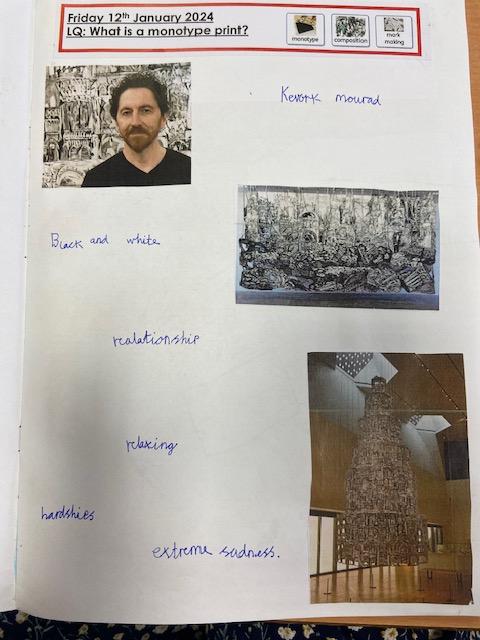 Friday 12th January 2024
LQ: What is a monotype print?
monotype
composition
mark
making
Kevork mourad
Black and white
realationship
relaxing
hardshies
extreme sadness.